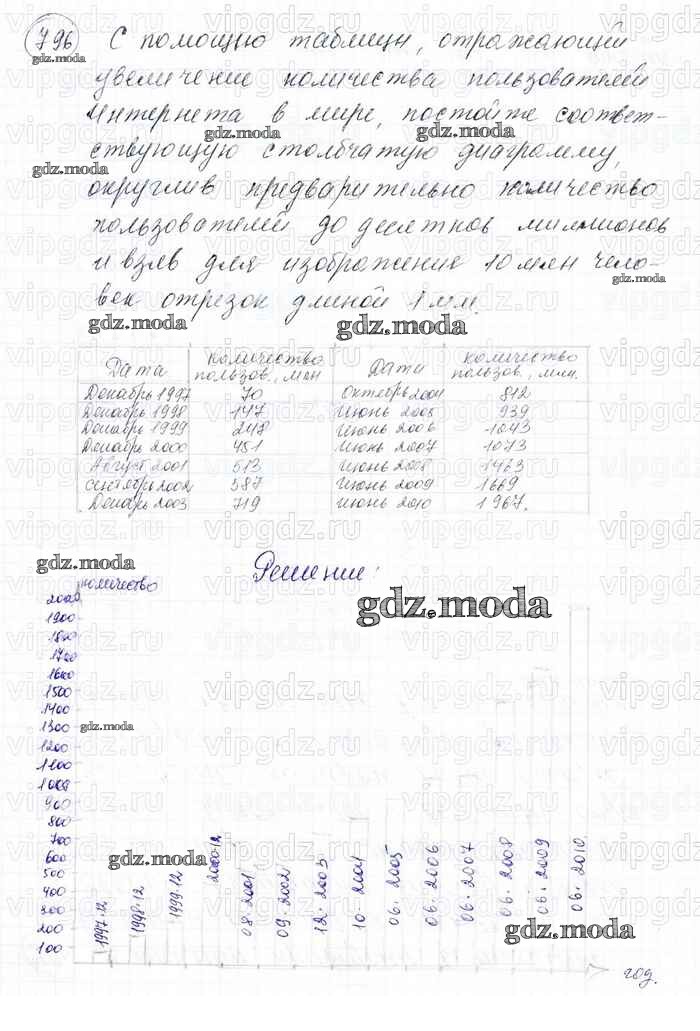 796
С помощью таблицы, отражающей
увеличение количества пользователей
Интернета в мире, постойте соответ-
ствующую столбчатую диаграмму,
округлив предварительно количество
пользователей до десятков миллионов
и взяв для изображение 10 млн чело-
век отрезок длиной 1 мм.
Дата Количество пользов., млн Дата Количество пользов., млн.
Декабрь 1997 70 Октябрь 2004 812
Декабрь 1998 147 Июнь 2005 939
Декабрь 1999 248 Июнь 2006 1043
Декабрь 2000 451 Июнь 2007 1073
Август 2001 513 Июнь 2008 1463
Сентябрь 2002 587 Июнь 2009 1669
Декабрь 2003 719 Июнь 2010 1967.
Решение:
количество
2000
1900
1800
1700
1600
1500
1400
1300
1200
1100
1000
900
800
700
600
500
400
300
200
100
1997.12
1998.12
1999.12
2000.12
08.2001
09.2002
12.2003
10.2004
06.2005
06.2006
06.2007
06.2008
06.2009
06.2010
год.
gdz.moda
vipgdz.ru